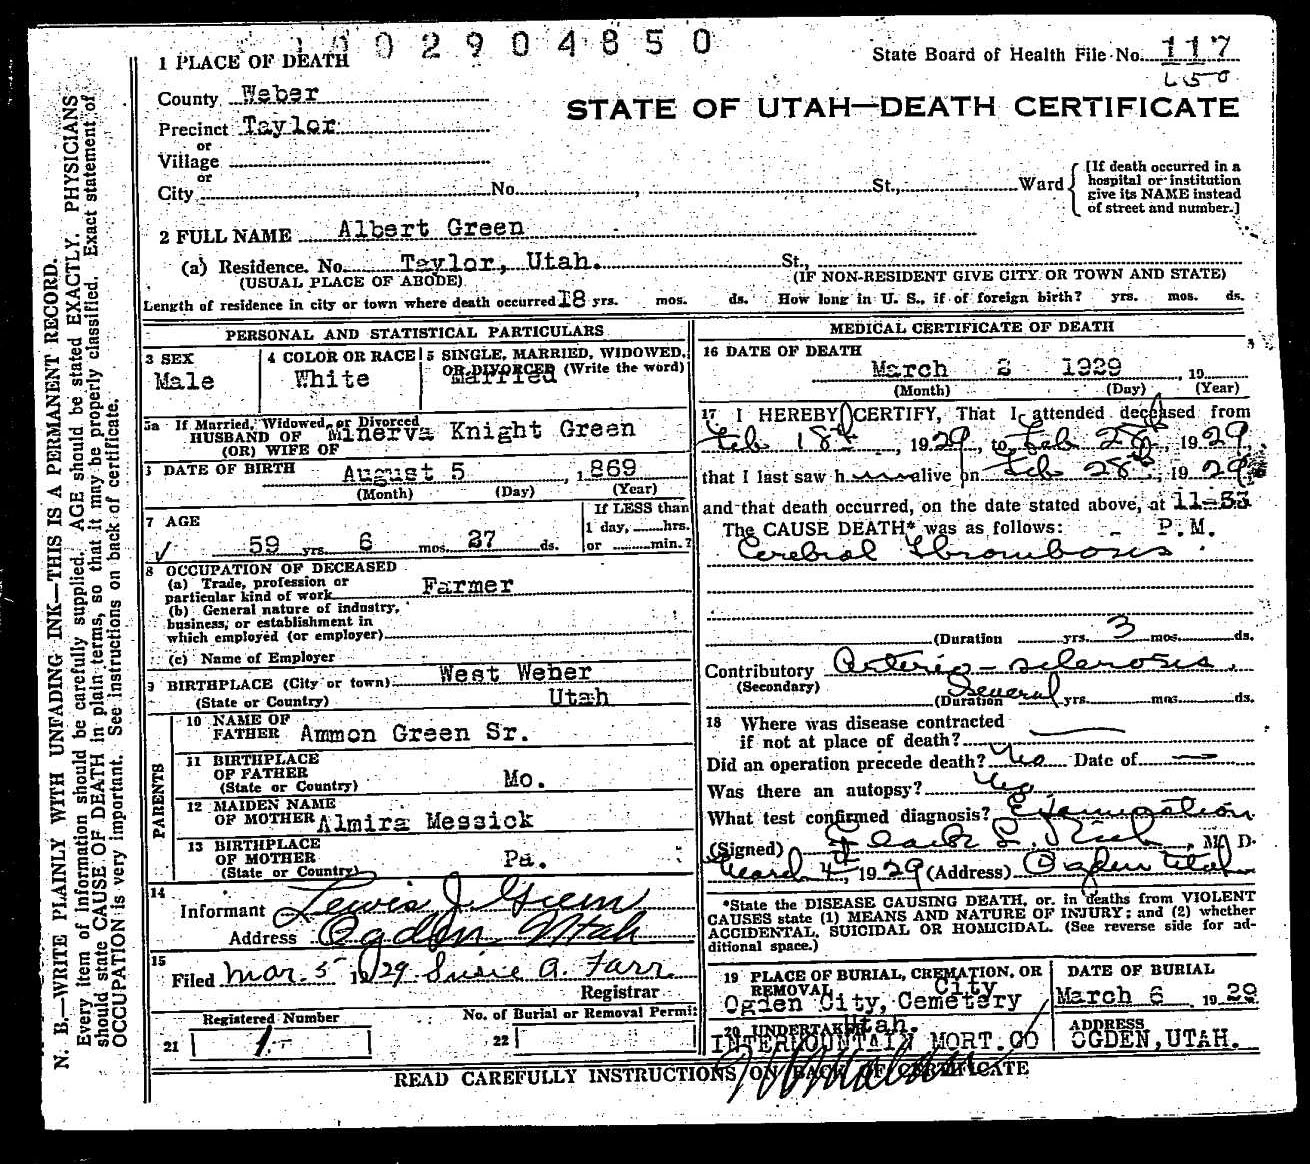 1002904850
State Board of Health File No. 117
1 PLACE OF DEATH
County Weber
STATE OF UTAH—DEATH CERTIFICATE
Precinct Taylor
or
Village
or
City No. , St., Ward
[If death occurred in a
hospital or institution
give its NAME instead
of street and number.]
2 FULL NAME Albert Green
(a) Residence. No. Taylor, Utah. St.,
(USUAL PLACE OF ABODE) (IF NON-RESIDENT GIVE CITY OR TOWN AND STATE)
Length of residence in city or town where death occurred 18 yrs. mos. ds. How long in U. S., if of foreign birth? yrs. mos. ds.
PERSONAL AND STATISTICAL PARTICULARS
3 SEX
Male
4 COLOR OR RACE
White
5 SINGLE, MARRIED, WIDOWED,
OR DIVORCED (Write the word)
Married
5a If Married, Widowed, or Divorced
HUSBAND OF Minerva Knight Green
(OR) WIFE OF
DATE OF BIRTH August 5, 1869
(Month) (Day) (Year)
7 AGE
59 yrs. 6 mos. 27 ds.
If LESS than
1 day, hrs.
or min.?
8 OCCUPATION OF DECEASED
(a) Trade, profession or
particular kind of work Farmer
(b) General nature of industry,
business, or establishment in
which employed (or employer)
(c) Name of Employer
9 BIRTHPLACE (City or town) West Weber
(State or Country) Utah
PARENTS
10 NAME OF
FATHER Ammon Green Sr.
11 BIRTHPLACE
OF FATHER
(State or Country) Mo.
12 MAIDEN NAME
OF MOTHER Almira Messick
13 BIRTHPLACE
OF MOTHER
(State or Country) Pa.
14
Informant Lewis J. Green
Address Ogden, Utah
15
Filed Mar. 5 1929 Susie A. Farr
Registrar
Registered Number
21 1
No. of Burial or Removal Permit
22
MEDICAL CERTIFICATE OF DEATH
16 DATE OF DEATH
March 2 1929, 19
(Month) (Day) (Year)
17 I HEREBY CERTIFY, That I attended deceased from
Feb 18th, 1929, to Feb 28th, 1929
that I last saw h alive on Feb 28th, 1929
and that death occurred, on the date stated above, at 11-33
The CAUSE DEATH* was as follows: P.M.
Cerebral Thrombosis
(Duration yrs. 3 mos. ds.
Contributory Arterio-sclerosis,
(Secondary) General
(Duration yrs. mos. ds.
18 Where was disease contracted
if not at place of death?
Did an operation precede death? No Date of
Was there an autopsy? No
What test confirmed diagnosis? Examination
(Signed) , M. D.
March 4, 1929 (Address) Ogden Utah
*State the DISEASE CAUSING DEATH, or, in deaths from VIOLENT
CAUSES state (1) MEANS AND NATURE OF INJURY; and (2) whether
ACCIDENTAL, SUICIDAL OR HOMICIDAL. (See reverse side for ad-
ditional space.)
19 PLACE OF BURIAL, CREMATION, OR
REMOVAL City
Ogden City, Cemetery
Utah.
DATE OF BURIAL
March 6, 1929
20 UNDERTAKER
INTERMOUNTAIN MORT. CO
ADDRESS
OGDEN, UTAH.
READ CAREFULLY INSTRUCTIONS ON BACK OF CERTIFICATE
N. B.—WRITE PLAINLY WITH UNFADING INK—THIS IS A PERMANENT RECORD.
Every item of information should be carefully supplied. AGE should be stated EXACTLY. PHYSICIANS
should state CAUSE OF DEATH in plain terms, so that it may be properly classified. Exact statement of
OCCUPATION is very important. See instructions on back of certificate.